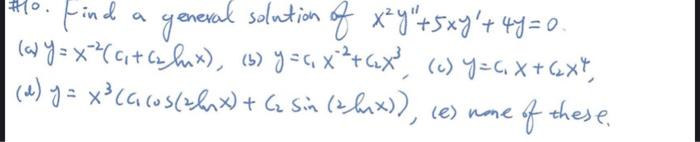 #10. Find a general solution of x²y''+5xy'+4y=0.
(a) y=x⁻²(c₁+c₂lnx), (b) y=c₁x⁻²+c₂x³, (c) y=c₁x+c₂x⁴,
(d) y= x³(c₁cos(2lnx)+c₂ sin(2lnx)), (e) none of these.